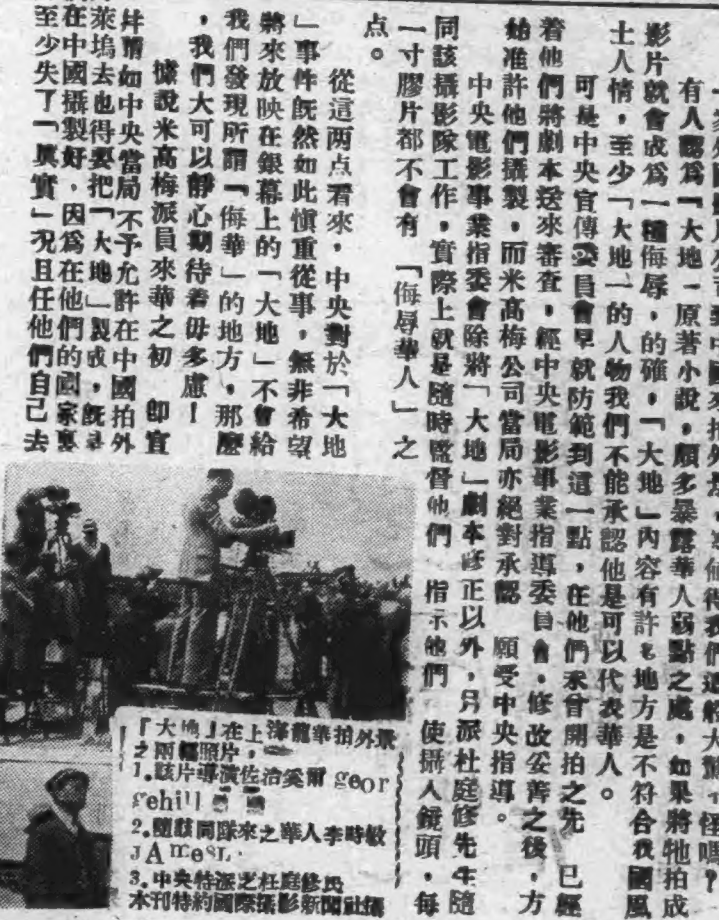 有人認爲「大地」原著小說，頗多暴露華人弱點之處，如果將牠拍成
影片就會成爲一種侮辱，的確，「大地」內容有許多地方是不符合我國風
土人情，至少「大地」的人物我們不能承認他是可以代表華人。
可是中央宣傳委員會早就防範到這一點，在他們未曾開拍之先 已經
着他們將劇本送來審查，經中央電影事業指導委員會，修改妥善之後，方
始准許他們攝製，而米高梅公司當局亦絕對承認 願受中央指導。
中央電影事業指委會除將「大地」劇本修正以外，另派杜庭修先生隨
同該攝影隊工作，實際上就是隨時監督他們 指示他們 使攝人鏡頭，每
一寸膠片都不會有 「侮辱華人」之
点。
從這两点看來，中央對於「大地
」事件既然如此愼重從事，無非希望
將來放映在銀幕上的「大地」不會給
我們發現所謂「侮華」的地方，那麼
，我們大可以靜心期待着毋多慮！
據說米高梅派員來華之初 卽宣
幷謂如中央當局不予允許在中國拍外
萊塢去也得要把「大地」製成，旣
在中國攝製好，因爲在他們的國家裏
至少失了「眞實」况且任他們自己去
「大地」在上海龍華拍外景
之兩幅照片，
1.該片導演佐治奚爾 geor
gehill
2.隨該同隊來之華人李時敏
JAmes
3.中央特派之杜庭修氏
本刊特約國際攝影新聞社攝